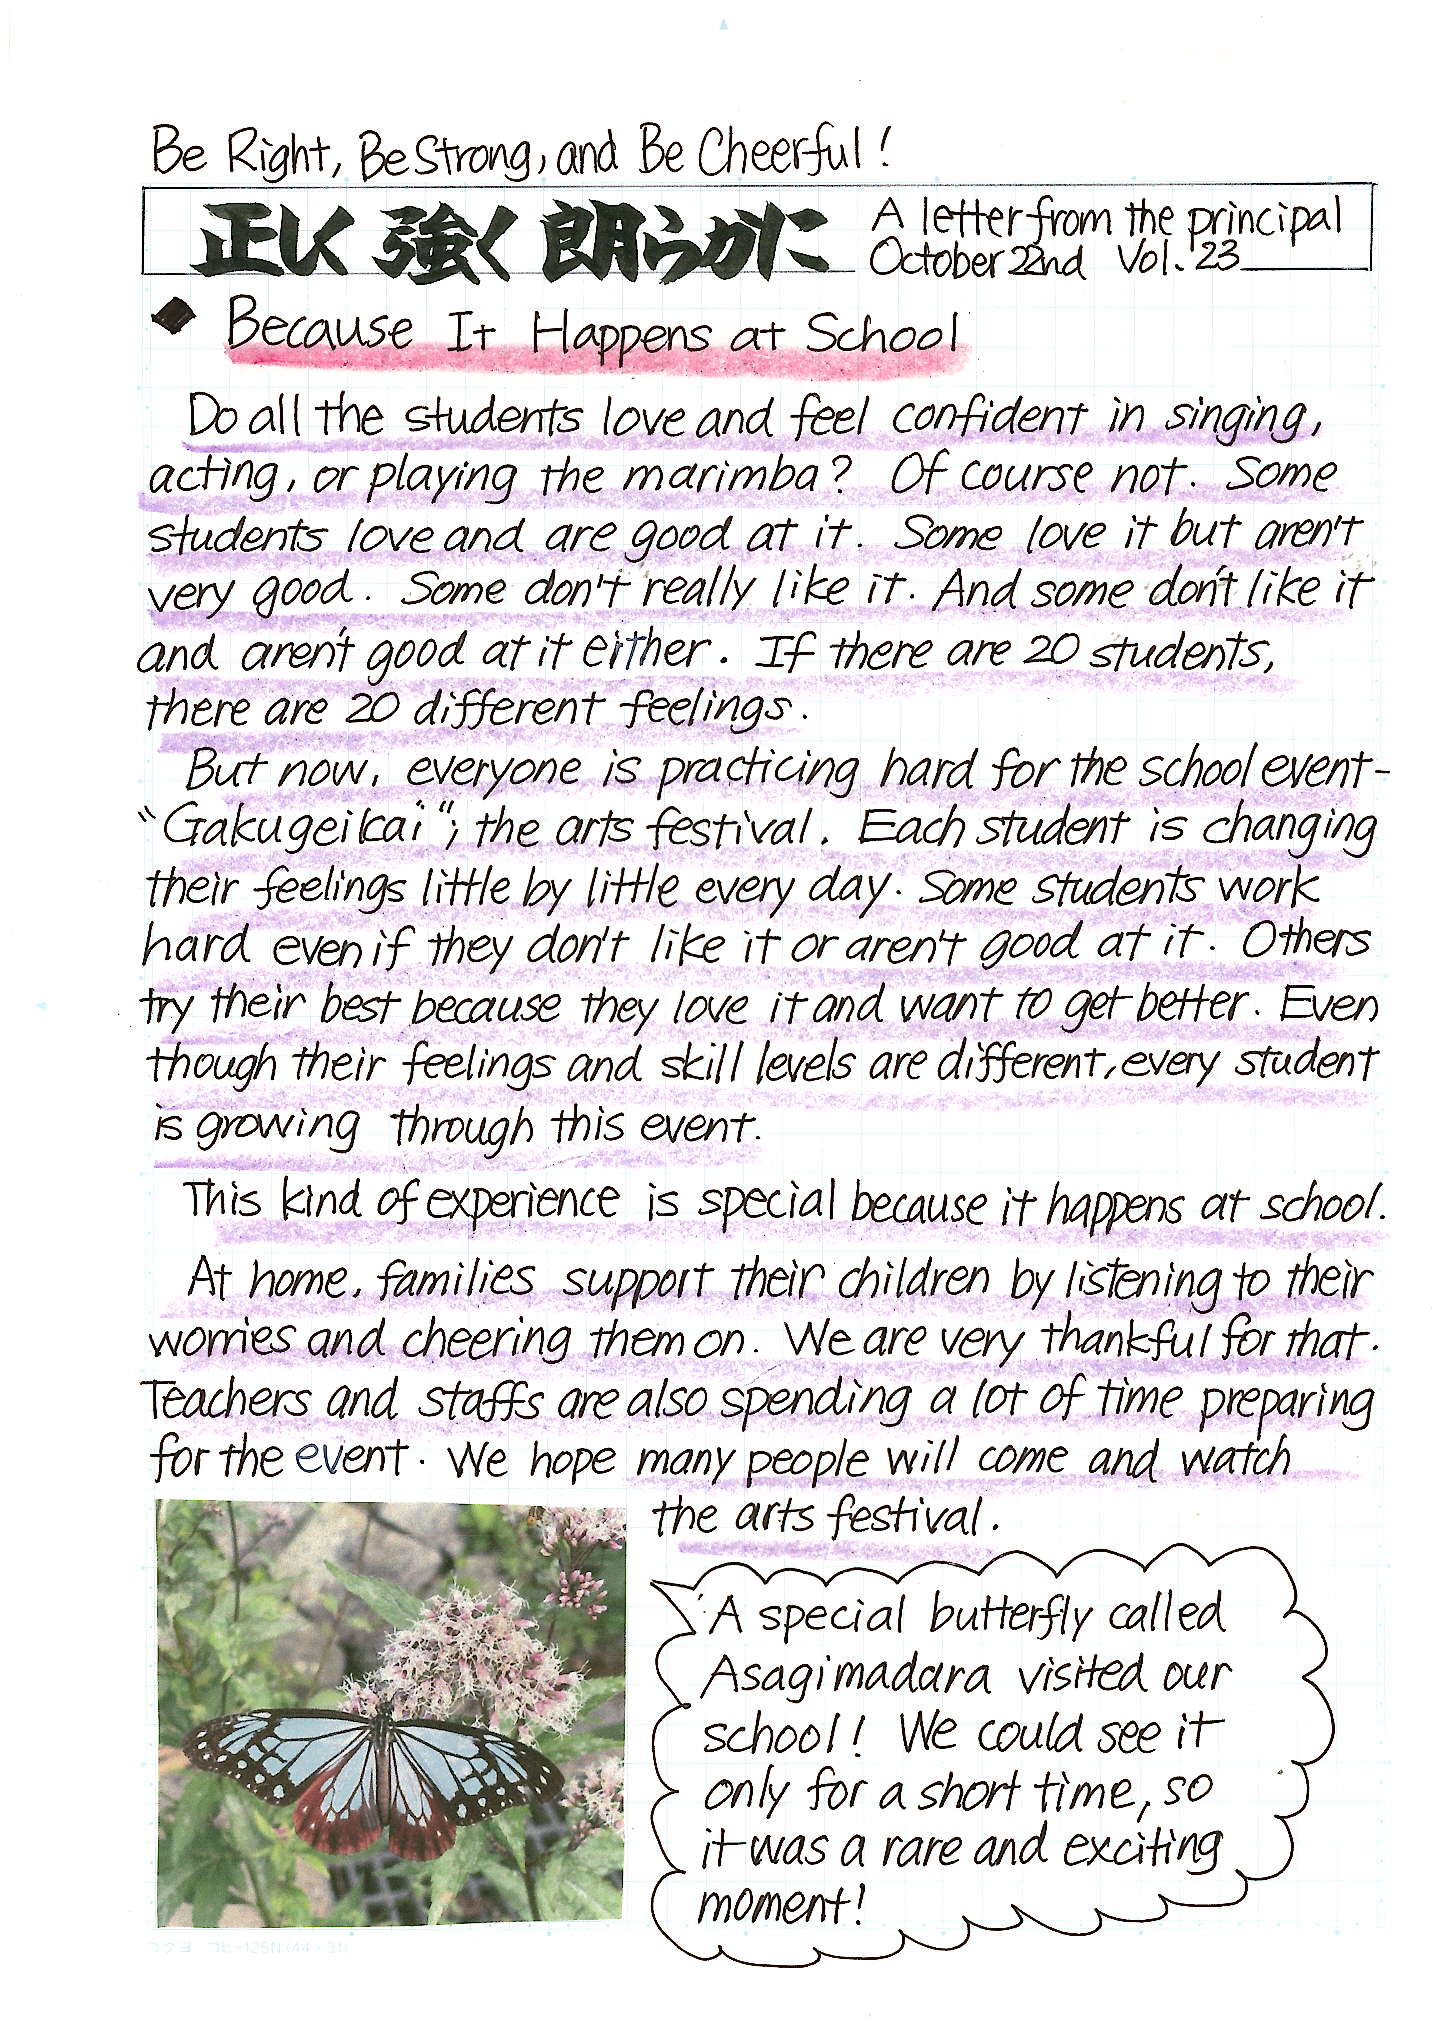 Be Right, Be Strong, and Be Cheerful!
正しく 強く 朗らかに
A letter from the principal
October 22nd Vol. 23
◆ Because It Happens at School
Do all the students love and feel confident in singing,
acting, or playing the marimba? Of course not. Some
students love and are good at it. Some love it but aren't
very good. Some don't really like it. And some don't like it
and aren't good at it either. If there are 20 students,
there are 20 different feelings.
But now, everyone is practicing hard for the school event-
"Gakugeikai", the arts festival. Each student is changing
their feelings little by little every day. Some students work
hard even if they don't like it or aren't good at it. Others
try their best because they love it and want to get better. Even
though their feelings and skill levels are different, every student
is growing through this event.
This kind of experience is special because it happens at school.
At home, families support their children by listening to their
worries and cheering them on. We are very thankful for that.
Teachers and staffs are also spending a lot of time preparing
for the event. We hope many people will come and watch
the arts festival.
A special butterfly called
Asagimadara visited our
school! We could see it
only for a short time, so
it was a rare and exciting
moment!
コクヨ コヒ-125N(44×31)